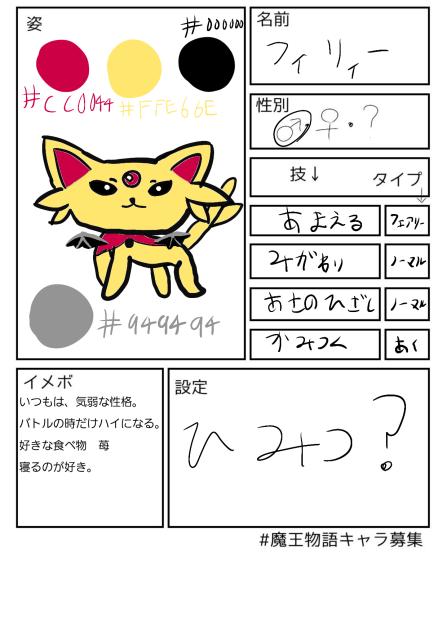 姿
#000000
#CC0044
#FFE66E
#949494
名前
フィリィー
性別
♂ ♀・?
技↓
タイプ
↓
あまえる
フェアリー
みがわり
ノーマル
あさのひざし
ノーマル
かみつく
あく
イメボ
いつもは、気弱な性格。
バトルの時だけハイになる。
好きな食べ物 苺
寝るのが好き。
設定
ひみつ?
#魔王物語キャラ募集